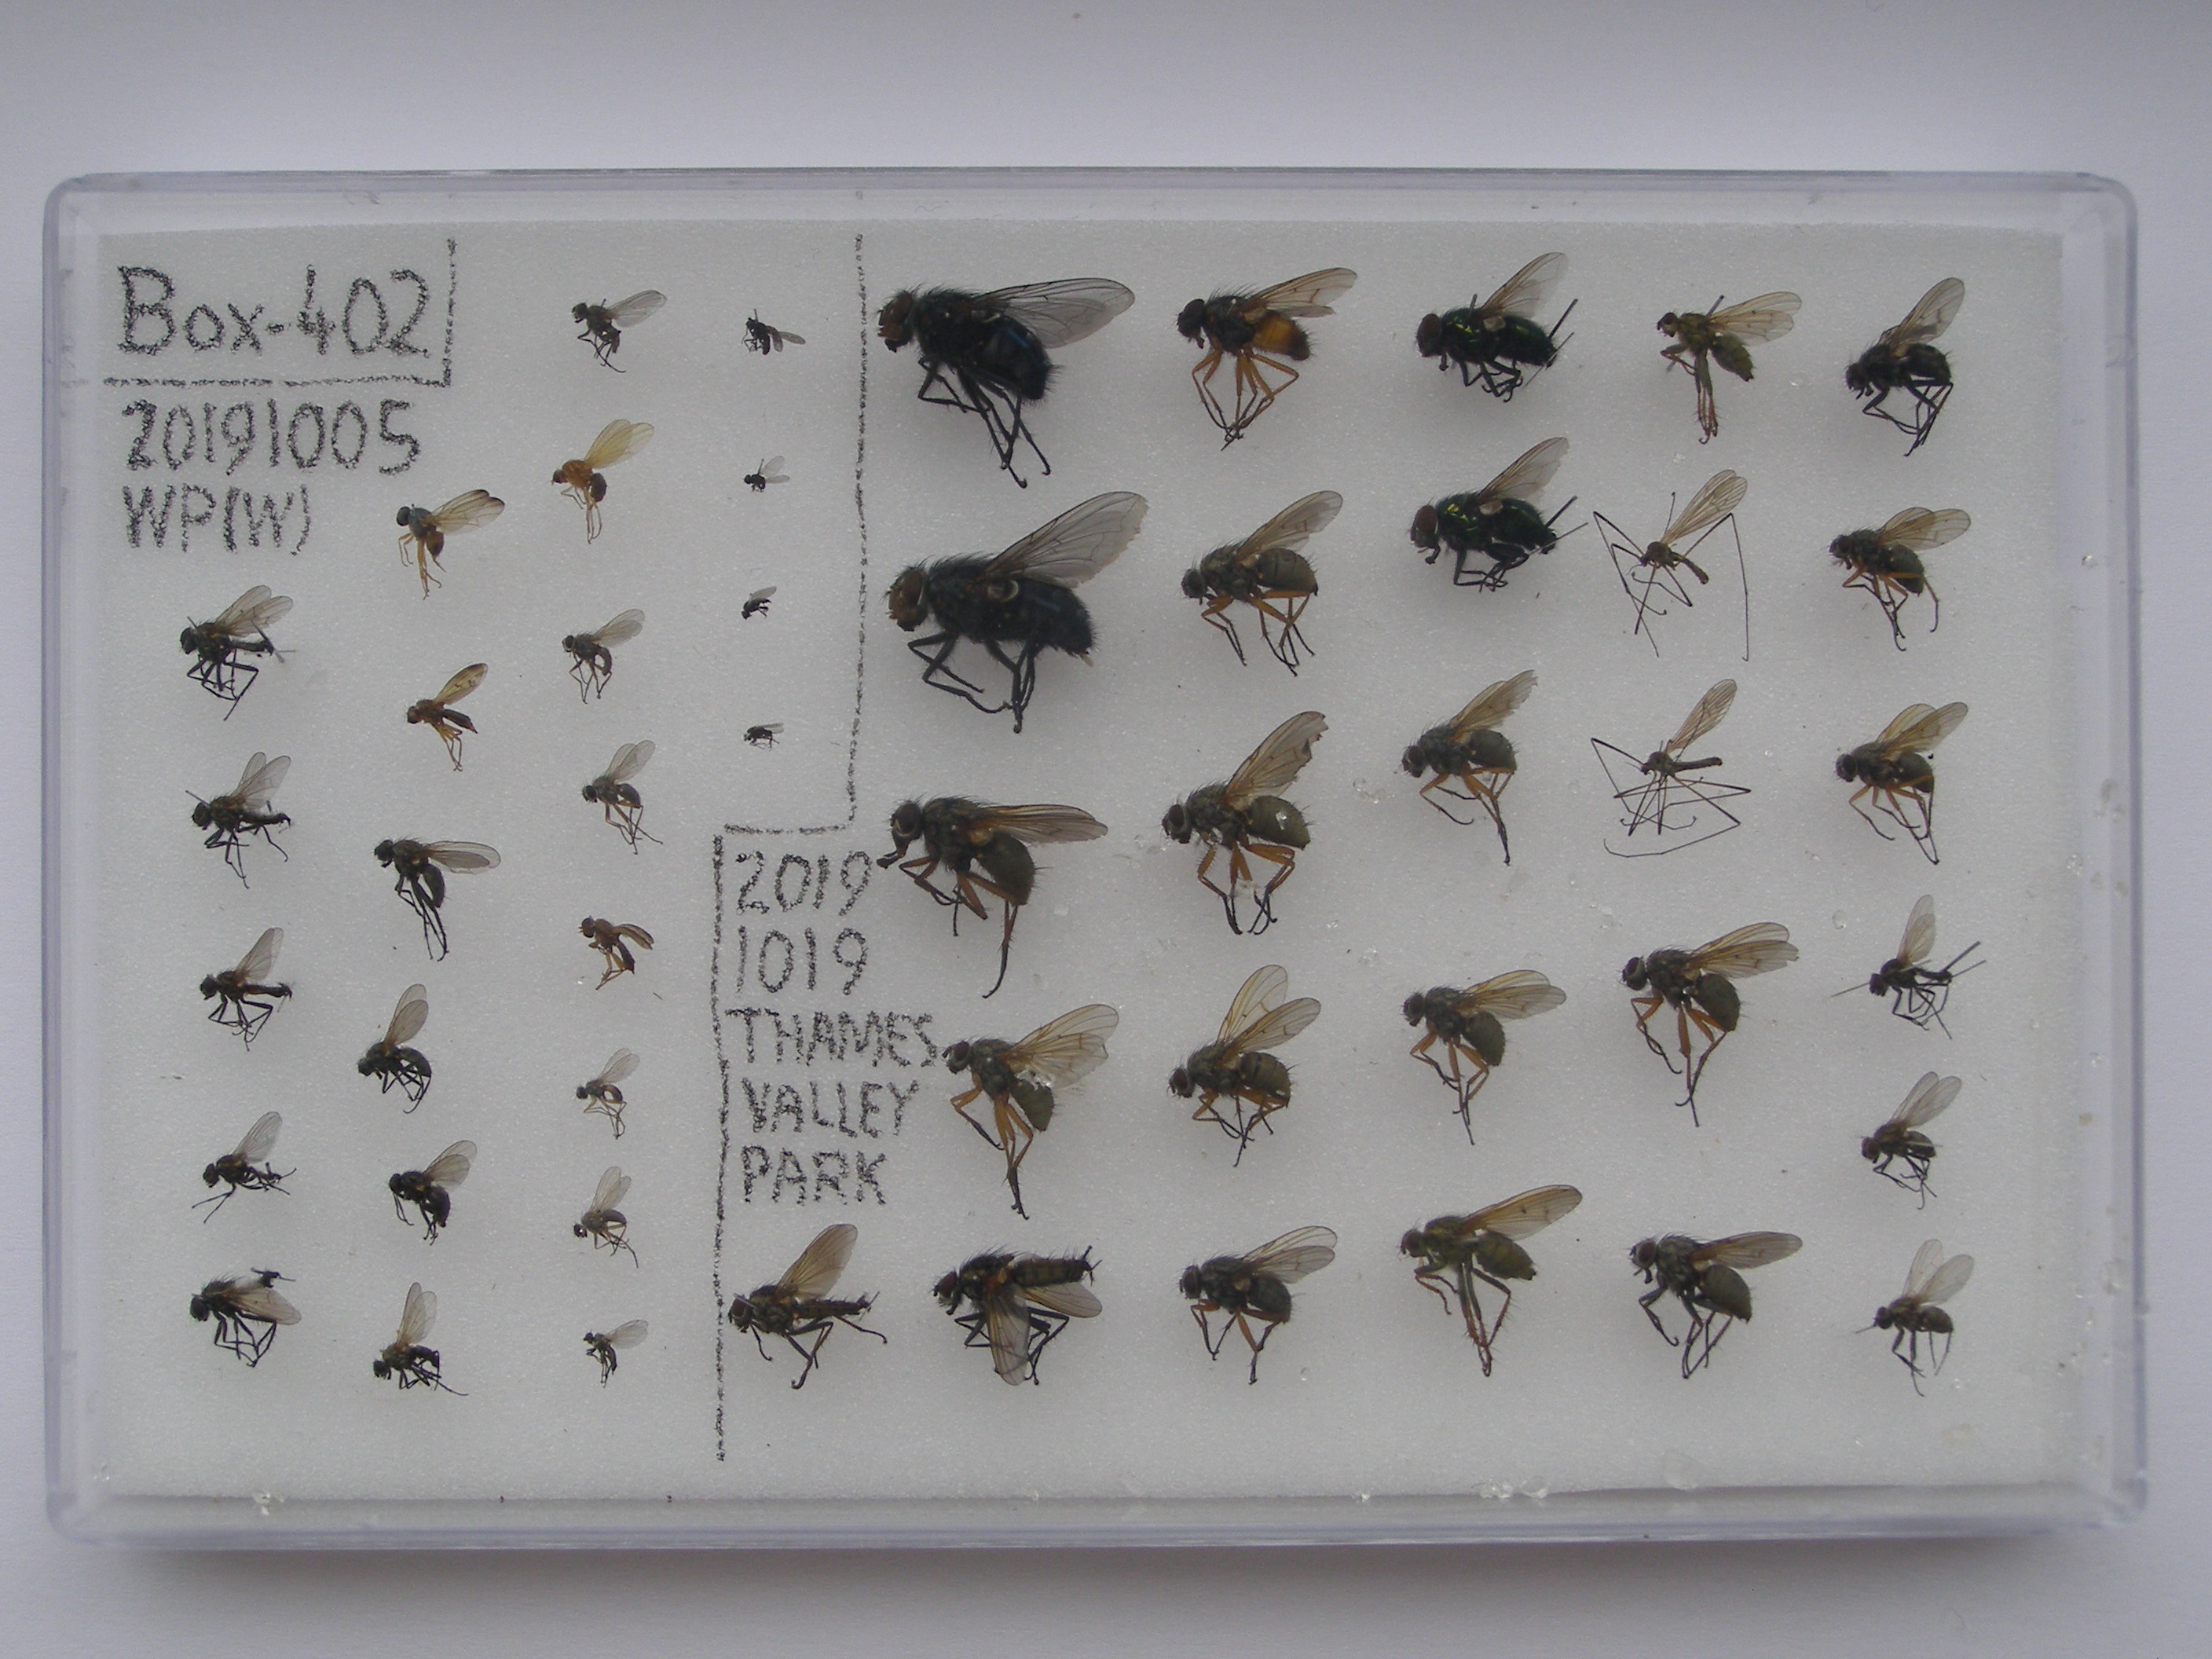 Box-402
20191005
WP(W)
2019
1019
THAMES
VALLEY
PARK